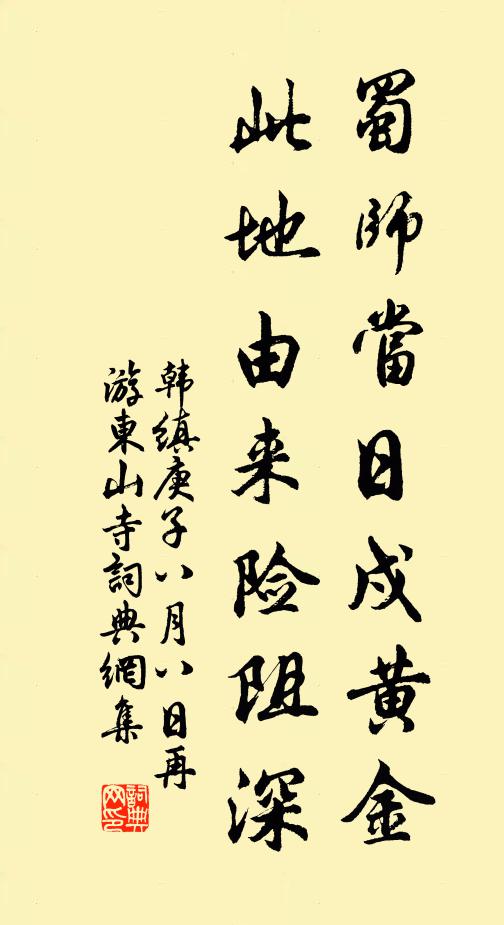 蜀師當日戍黄金
此地由来险阻深
韩缜庚子八月八日再
游東山寺詞典網集
詞典网印